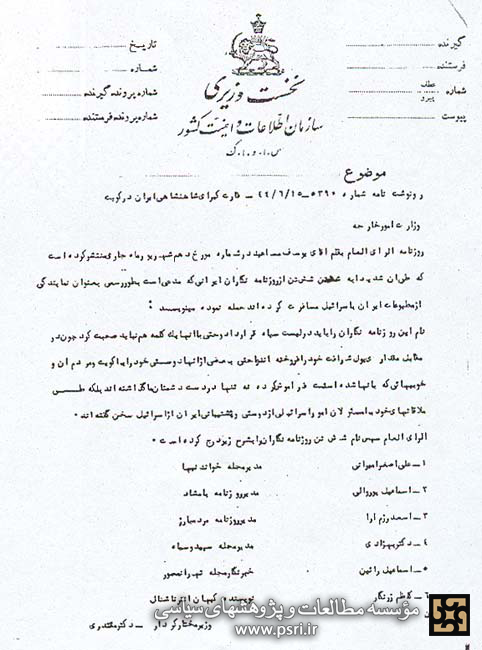 گیرنده
فرستنده
شماره عطف پیرو
پیوست
تاریخ
شماره
شماره پرونده گیرنده
شماره پرونده فرستنده
نخست وزیری
سازمان اطلاعات و امنیت کشور
س.ا.و.ا.ک
موضوع
رونوشت نامه شماره ۵۳۹۰ــ ۴۴/۶/۱۵ ــ سفارت کبرای شاهنشاهی ایران در کویت
وزارت امور خارجه
روزنامه الرای العام بقلم آقای یوسف مساعید در شماره مورخ دهم شهریور ماه جاری منتشر کرده است
که طی آن شدیدا به شش تن از روزنامه نگاران ایرانی که مدعی است بطور رسمی بعنوان نمایندگی
از مطبوعات ایران باسرائیل مسافرت کرده اند حمله نموده مینویسد :
نام این روزنامه نگاران را باید در لیست سیاه قرار داد و حتی با آنها یک کلمه هم نباید صحبت کرد چون در
مقابل مقداری پول شرافت خود را فروخته اند حتی بعضی از آنها دوستی خود را با کویت و مردم آن و
خوبیهائی که بآنها شده است فراموش کرده نه تنها در دست دشمنان ما گذاشته اند بلکه طی
ملاقاتهای خود با مسئولان امور اسرائیلی از دوستی و پشتیبانی ایران از اسرائیل سخن گفته اند.
الرای العام سپس نام شش تن روزنامه نگاران را بشرح زیر درج کرده است .
۱ ــ علی اصغر امیرانی مدیر مجله خواندنیها
۲ ــ اسماعیل پوروالی مدیر روزنامه بامشاد
۳ ــ اسعد رزم آرا مدیر روزنامه مرد مبارز
۴ ــ دکتر بهزادی مدیر مجله سپید و سیاه
۵ ــ اسماعیل رائین خبرنگار مجله تهران مصور
۶ ــ کاظم زرنگار نویسنده کیهان انترناشنال
وزیر مختار کاردار ــ دکتر مقتدری
مؤسسه مطالعات و پژوهشهای سیاسی
www.psri.ir